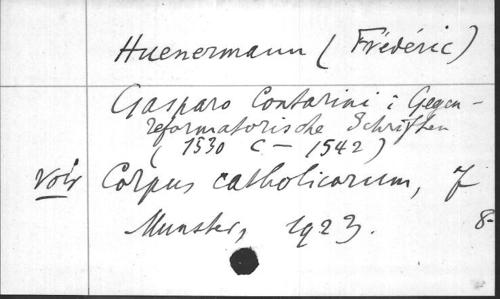 Huenermann (Frédéric)
Gasparo Contarini : Gegen-
reformatorische Schriften
( 1530 C - 1542 )
voir Corpus catholicorum, 7
Munster, 1923. 8-